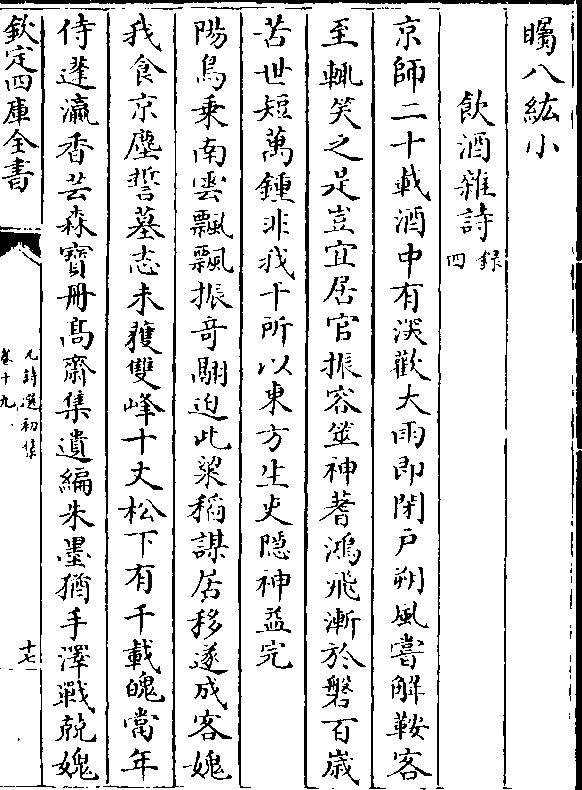 矚八紘小
飲酒雜詩録四
京師二十載酒中有淡歡大雨即閉户朔風嘗解鞍客
至輒笑之是豈宜居官振容筮神蓍鴻飛漸於磐百歳
苦世短萬鍾非我干所以東方生吏隠神益完
陽鳥乗南雲飄飄振竒翮迫此粱稻謀居移遂成客媿
我食京塵誓墓志未獲雙峰十丈松下有千載魄當年
侍蓬瀛香芸森寶册髙齋集遺編朱墨猶手澤戰兢媿
欽定四庫全書
元詩選初集
卷十九
十七